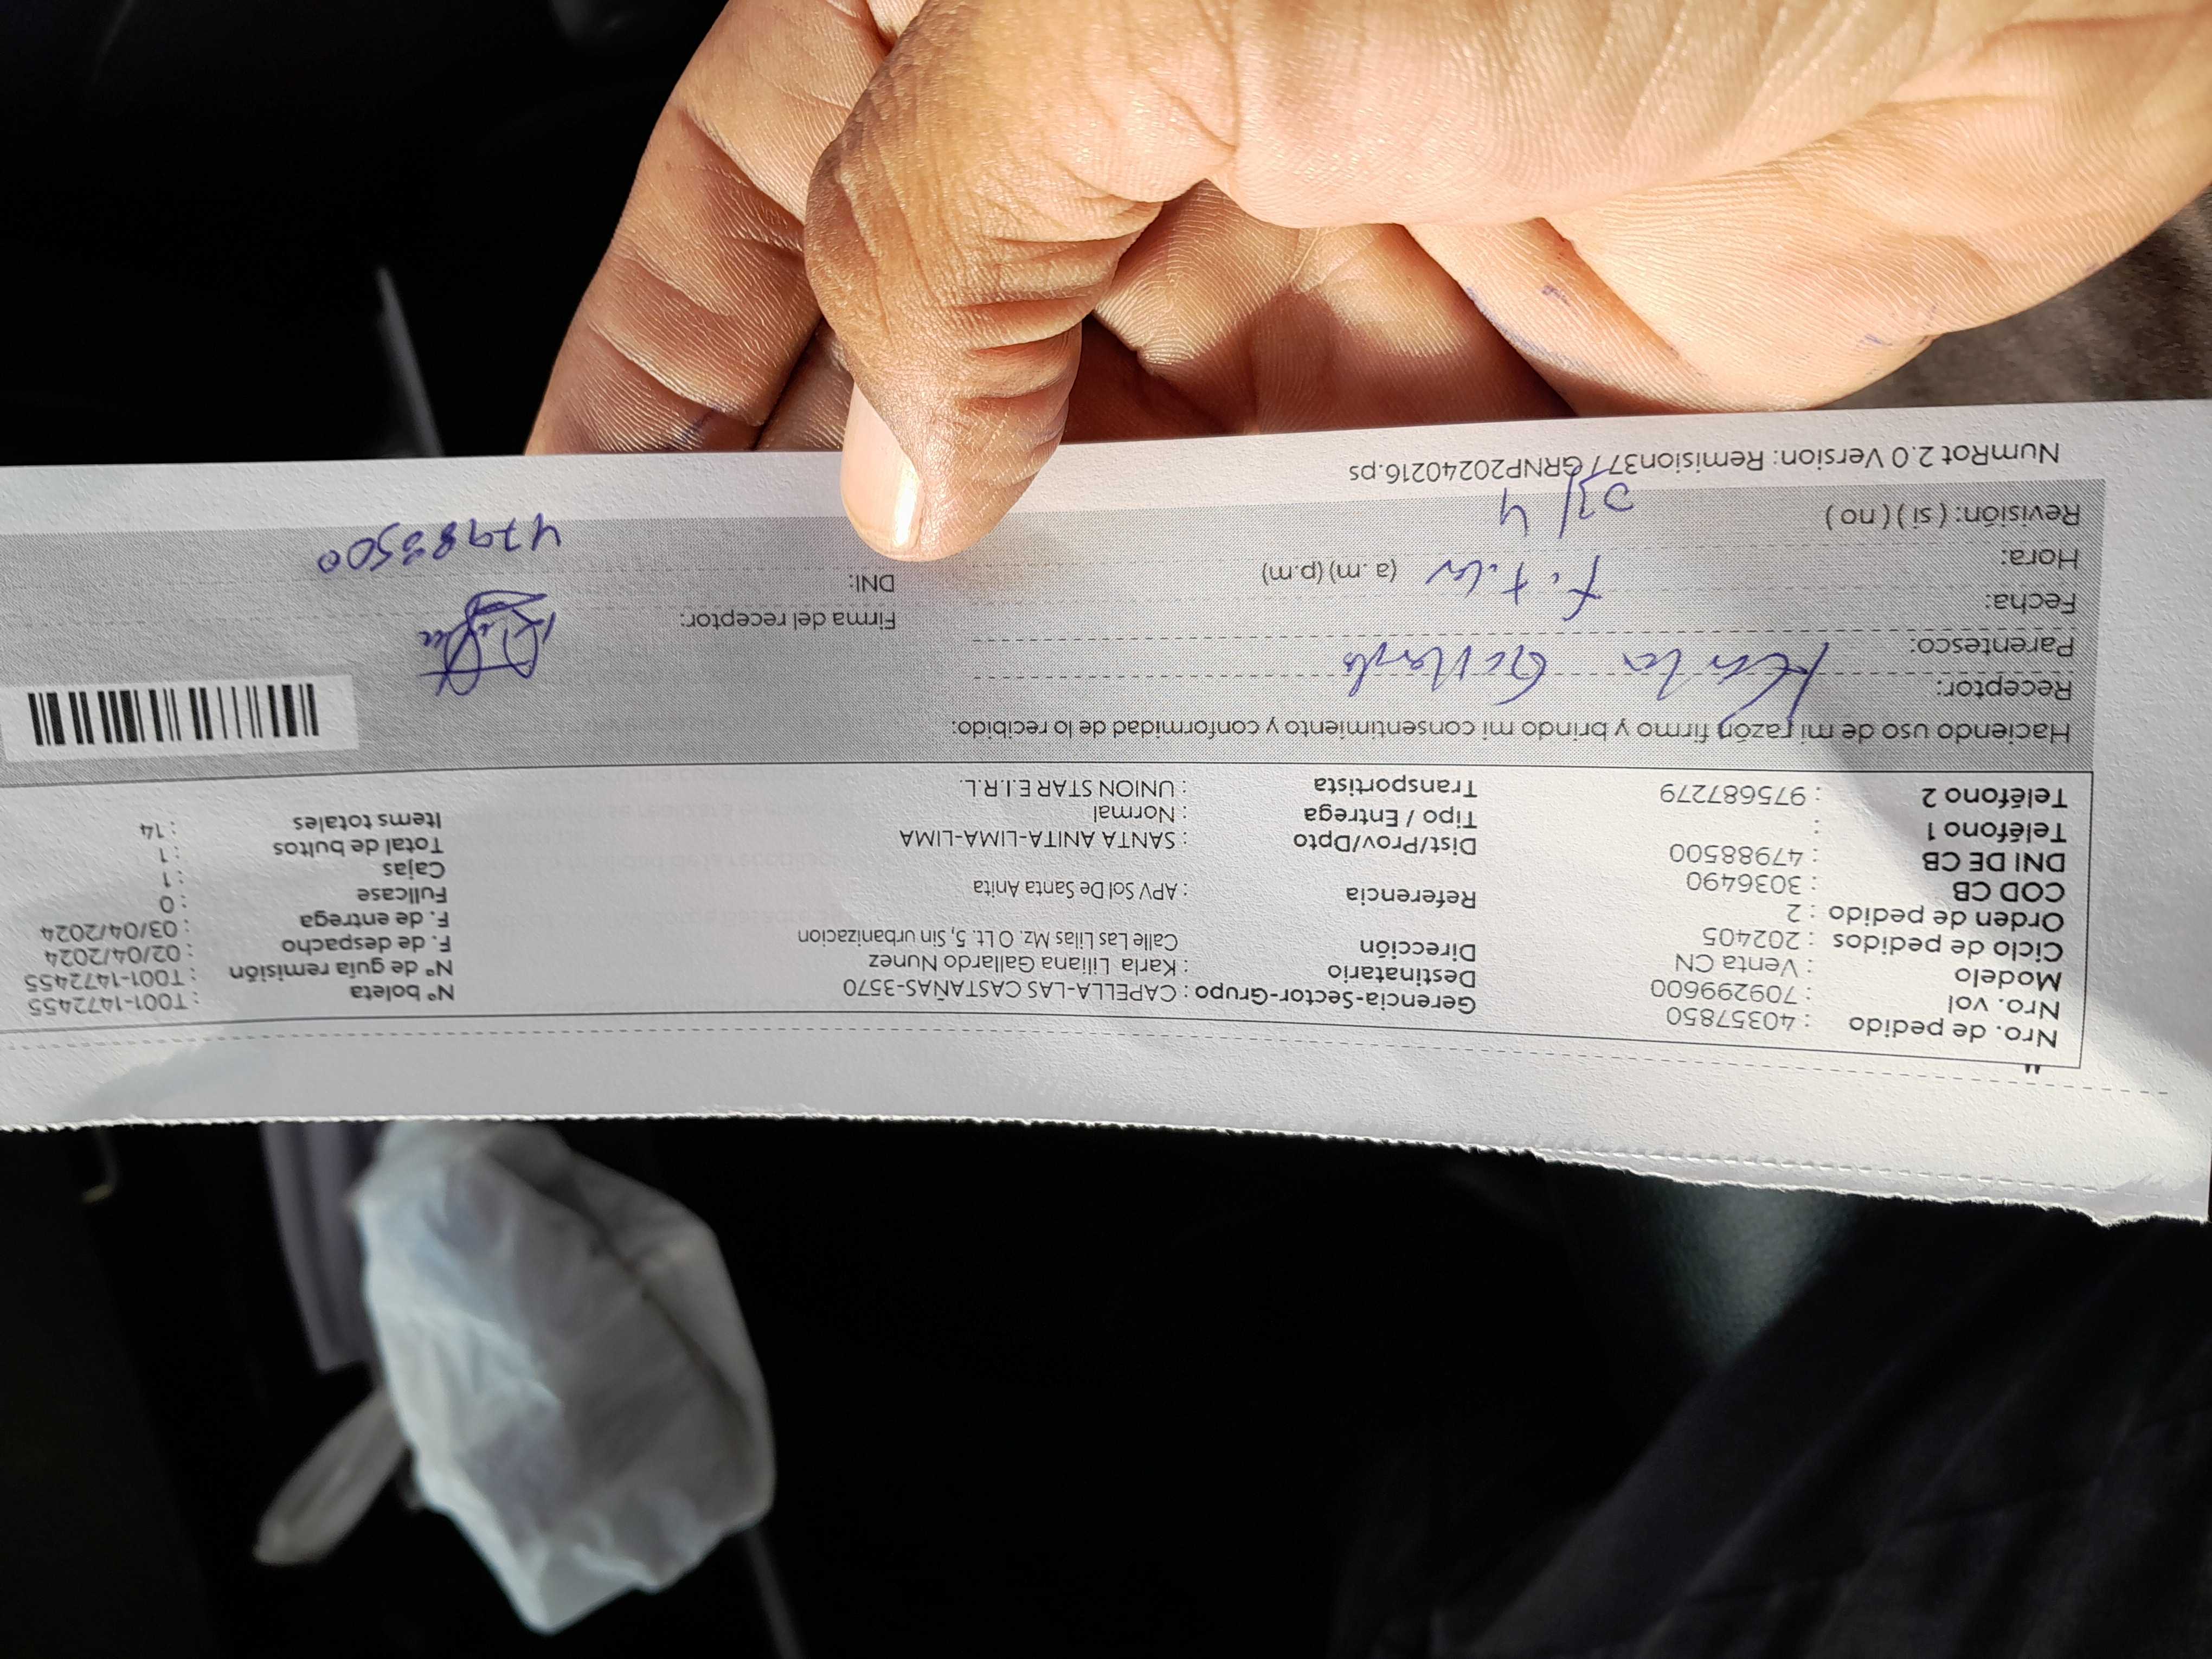 Nro. de pedido : 40357850 Gerencia-Sector-Grupo : CAPELLA-LAS CASTAÑAS-3570 N° boleta : T001-1472455
Nro. vol : 709299600 Destinatario : Karla Liliana Gallardo Nunez N° de guía remisión : T001-1472455
Modelo : Venta CN Dirección Calle Las Lilas Mz. O Lt. 5, Sin urbanizacion F. de despacho : 02/04/2024
Ciclo de pedidos : 202405 F. de entrega : 03/04/2024
Orden de pedido : 2 Referencia : APV Sol De Santa Anita Fullcase : 0
COD CB : 3036490 Cajas : 1
DNI DE CB : 47988500 Dist/Prov/Dpto : SANTA ANITA-LIMA-LIMA Total de bultos : 1
Teléfono 1 : Tipo / Entrega : Normal Items totales : 14
Teléfono 2 : 975687279 Transportista : UNION STAR E.I.R.L.
Haciendo uso de mi razón firmo y brindo mi consentimiento y conformidad de lo recibido:
Receptor: Karla Gallardo
Parentesco:
Fecha: Firma del receptor:
Hora: (a.m) (p.m) DNI: 47988500
Revisión: ( si ) ( no )
NumRot 2.0 Version: Remision377GRNP20240216.ps